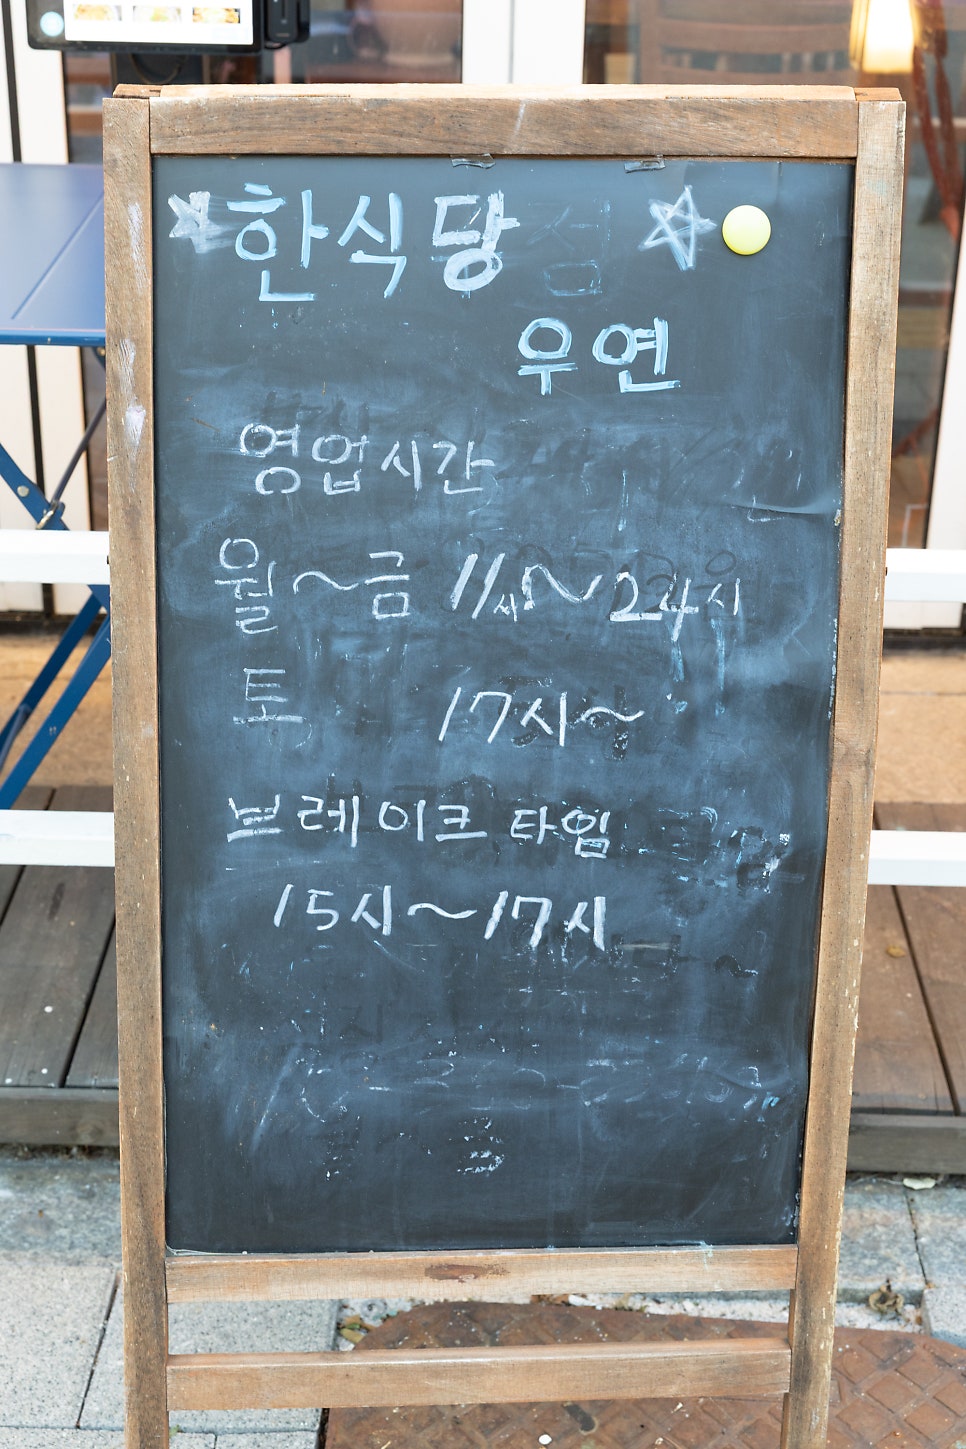 한식당
우연
영업시간
월~금 11시~24시
토 17시~
브레이크 타임
15시~17시